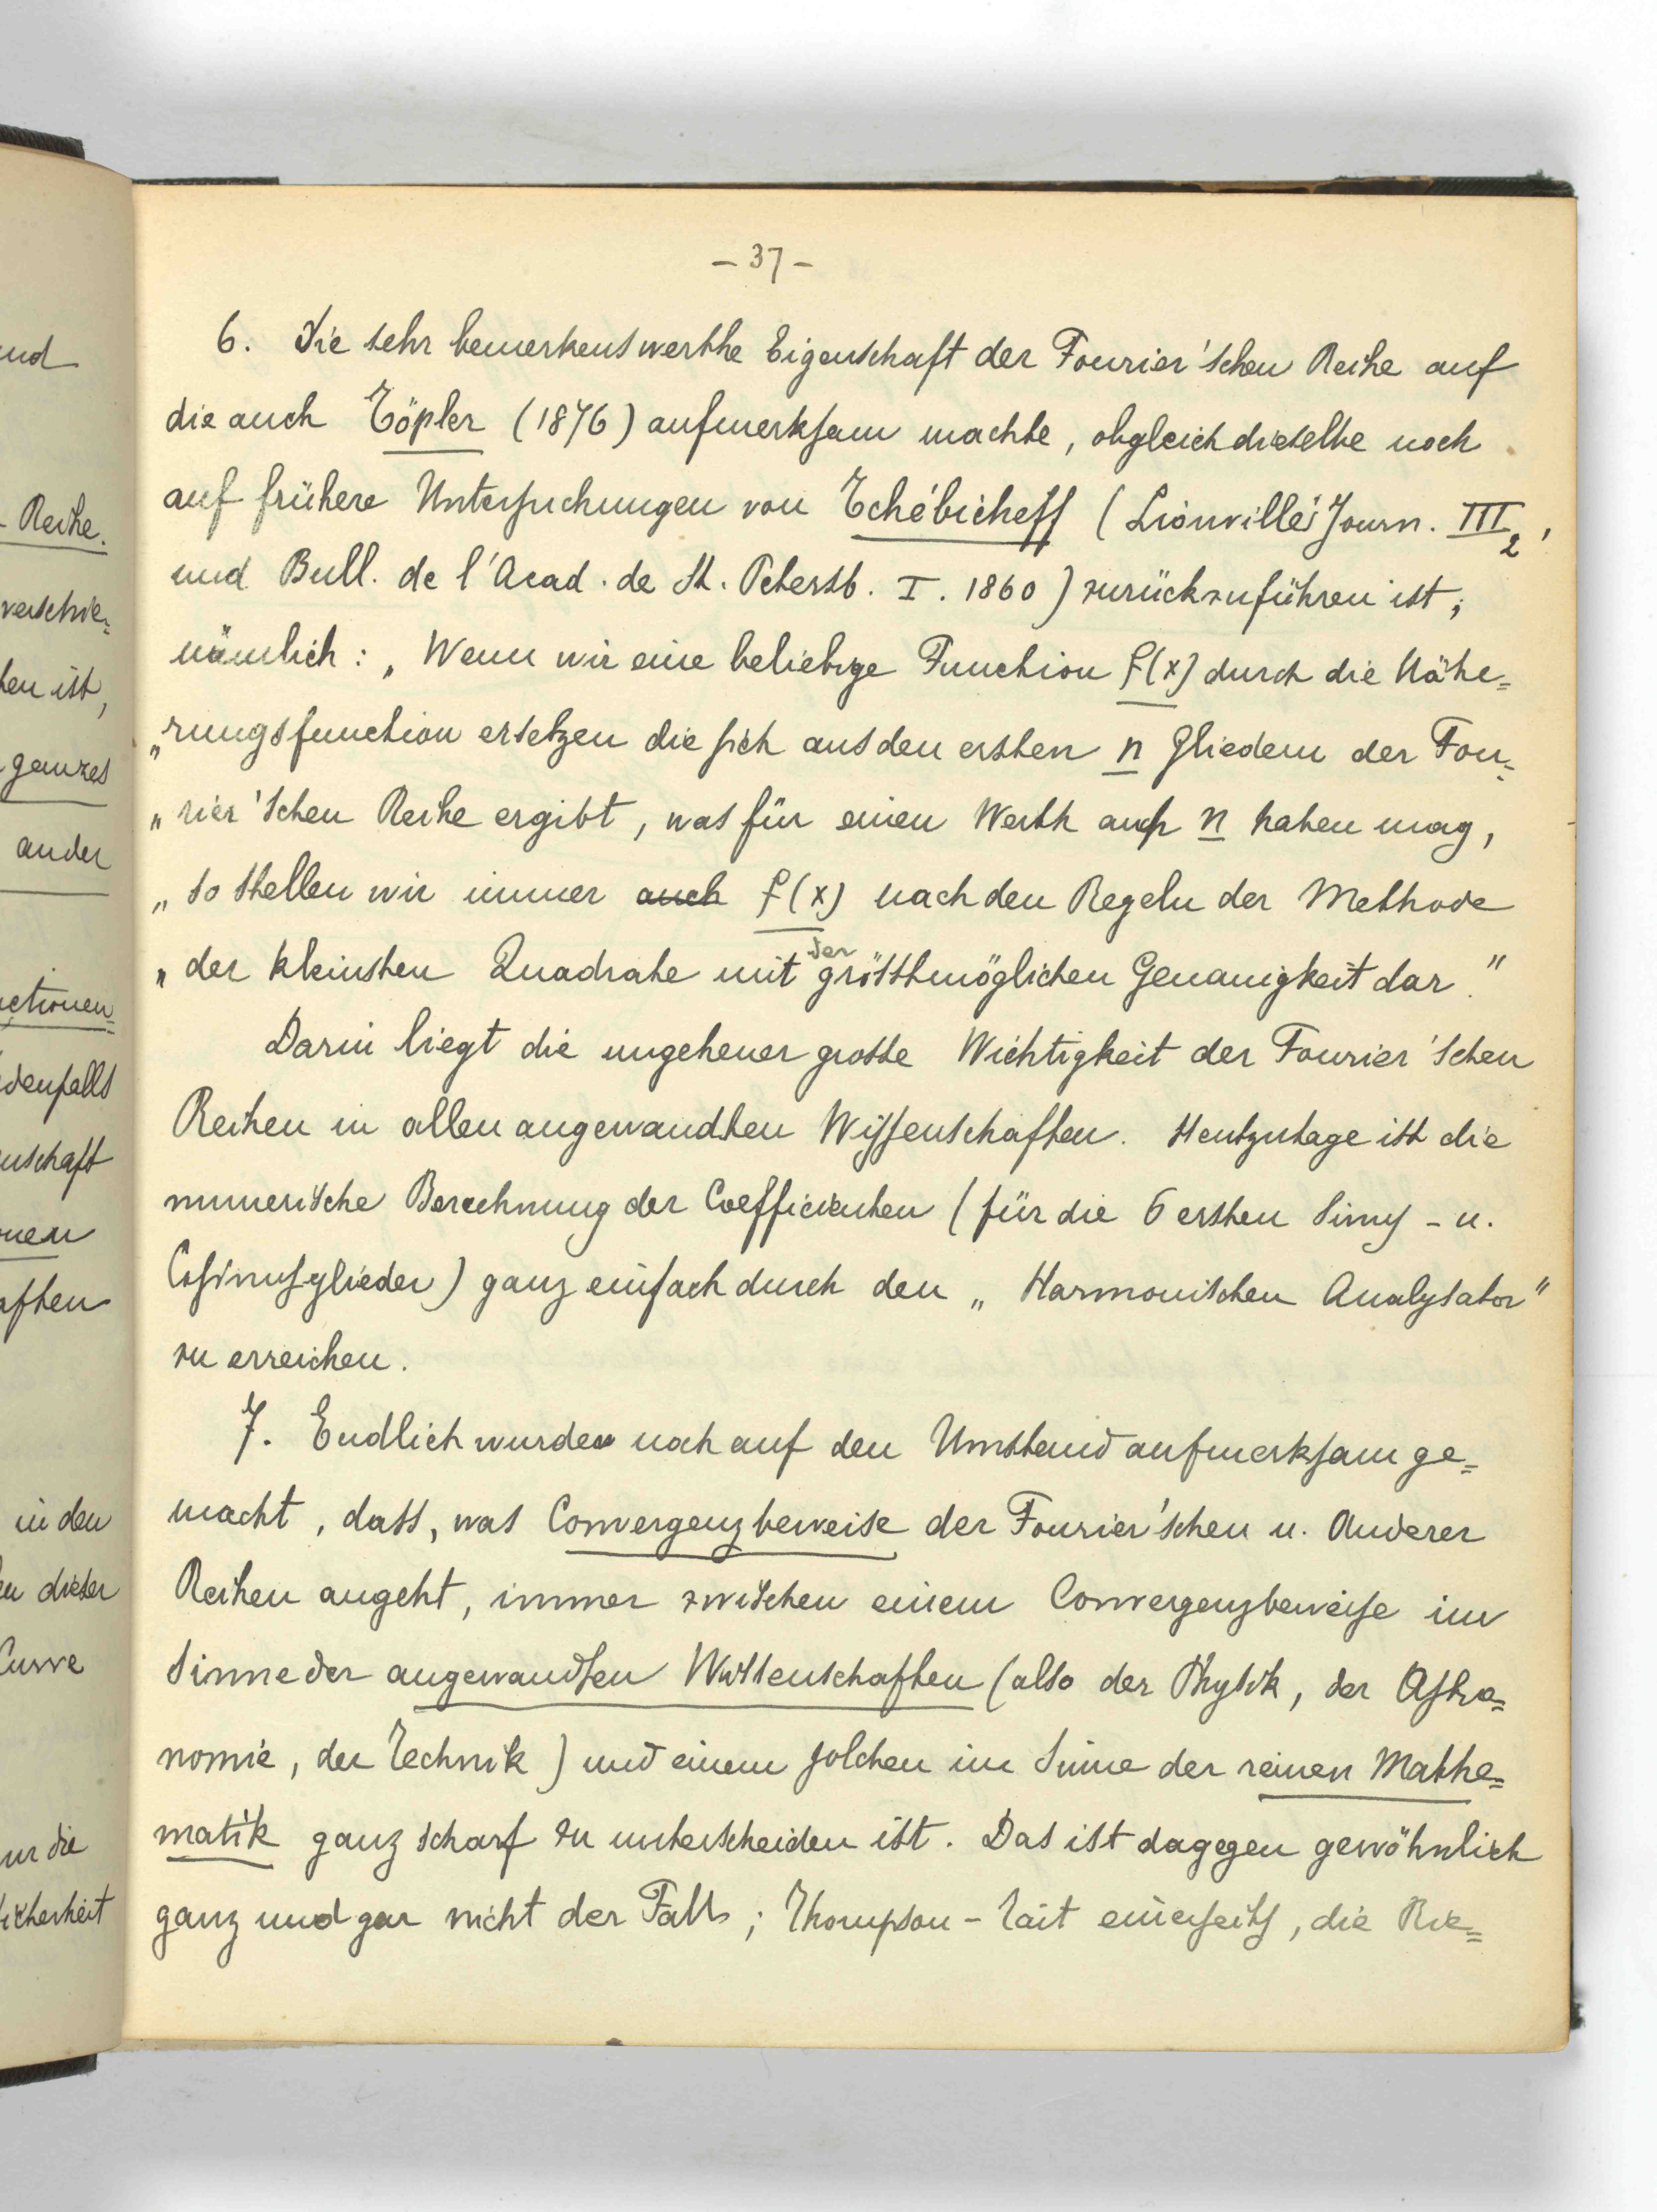 - 37 -
6. Die sehr bemerkenswerthe Eigenschaft der Fourier'schen Reihe auf
die auch Töpler (1876) aufmerksam machte, obgleich dieselbe noch
auf frühere Untersuchungen von Tchébicheff (Liouville's Journ. III2,
und Bull. de l'Acad. de St. Petersb. I. 1860) zurückzuführen ist;
nämlich: „Wenn wir eine beliebige Function f(x) durch die Nähe=
„rungsfunction ersetzen die sich aus den ersten n Gliedern der Fou=
„rier'schen Reihe ergibt, was für einen Werth auch n haben mag,
„so stellen wir immer auch f(x) nach den Regeln der Methode
„der kleinsten Quadrate mit der grösstmöglichen Genauigkeit dar."
Darin liegt die ungeheuer grosse Wichtigkeit der Fourier'schen
Reihen in allen angewandten Wissenschaften. Heutzutage ist die
numerische Berechnung der Coefficienten (für die 6 ersten Sinus- u.
Cosinusglieder) ganz einfach durch den „Harmonischen Analysator"
zu erreichen.
7. Endlich wurde noch auf den Umstand aufmerksam ge=
macht, dass, was Convergenzbeweise der Fourier'schen u. Anderer
Reihen angeht, immer zwischen einem Convergenzbeweise im
Sinne der angewandten Wissenschaften (also der Physik, der Astro=
nomie, der Technik) und einem solchen im Sinne der reinen Mathe=
matik ganz scharf zu unterscheiden ist. Das ist dagegen gewöhnlich
ganz und gar nicht der Fall; Thompson-Tait einerseits, die Rie=
und
- Reihe.
verschie=
ten ist,
ganzes
ander
nctionen=
denfalls
nschaft
nen
aften
in den
en dieser
Curve
ur die
Sicherheit